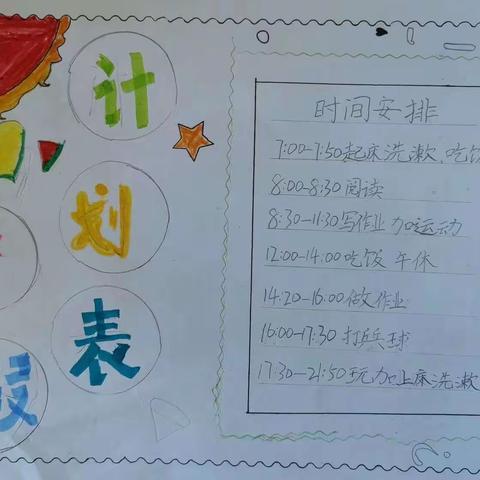 计
划
表
时间安排
7:00-7:50起床洗漱、吃饭
8:00-8:30阅读
8:30-11:30写作业 加运动
12:00-14:00吃饭 午休
14:20-16:00做作业
16:00-17:30打乒乓球
17:30-21:50玩加上床洗漱